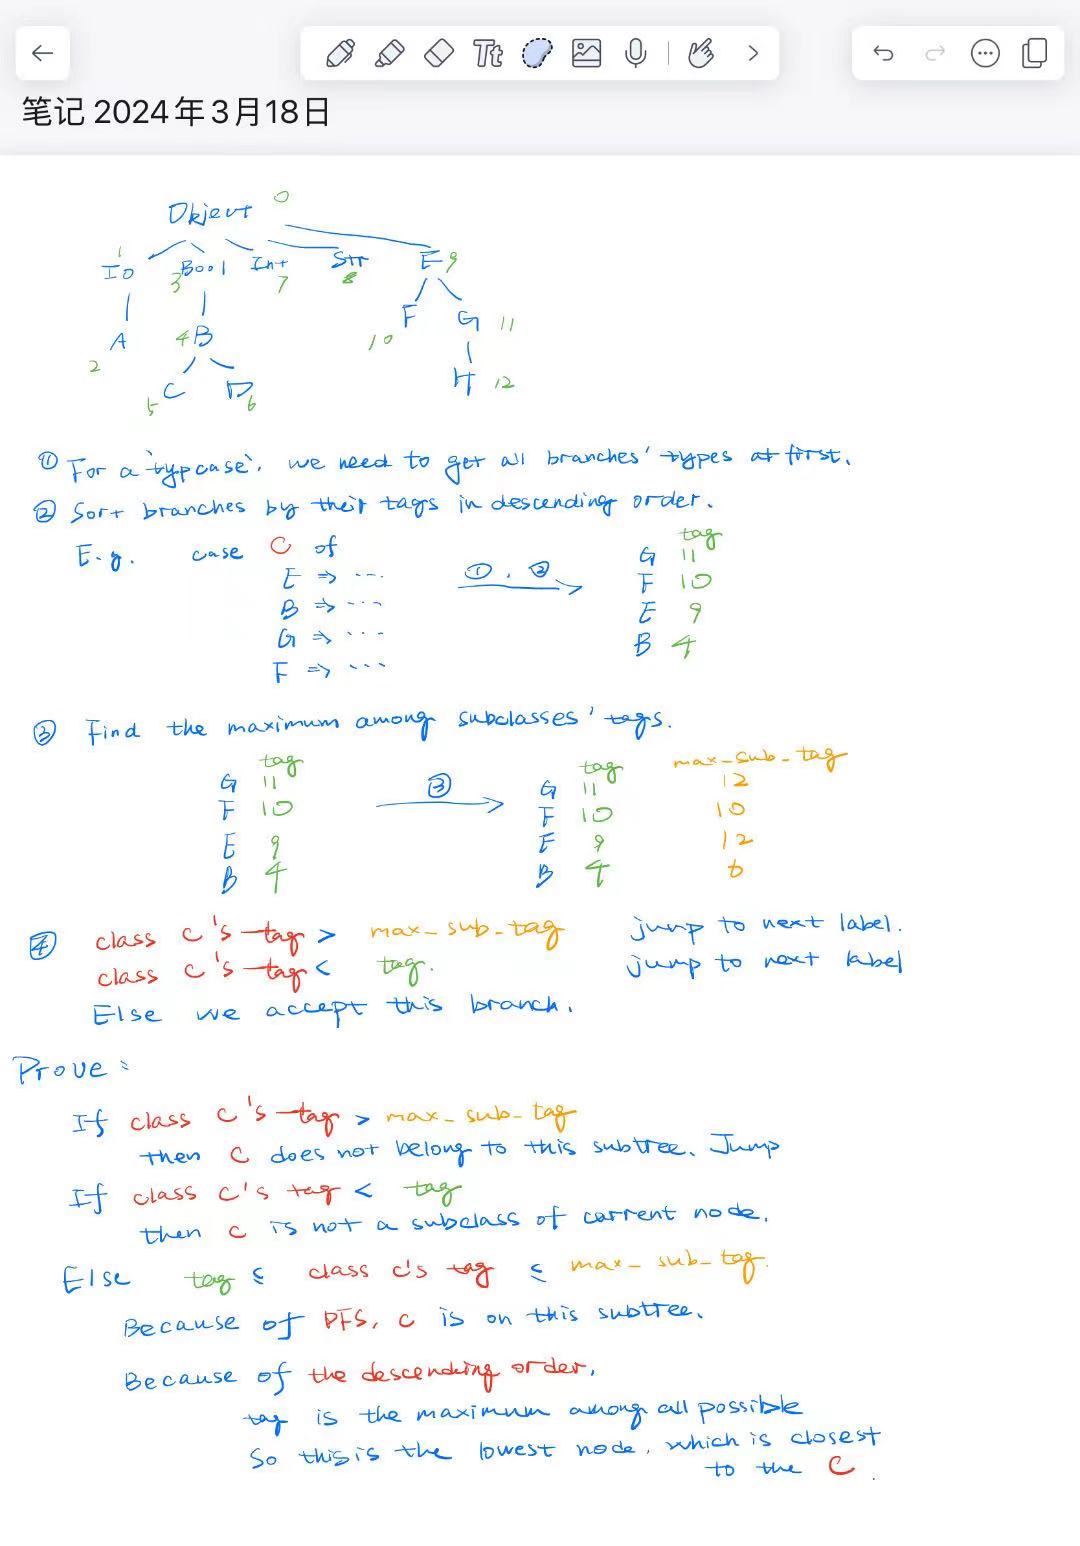 笔记 2024年3月18日
Object 0
1
Io 3 Bool Int 7 Str 8 E 9
A 2 4 B F 10 G 11
5 C D 6 H 12
① For a `typcase`, we need to get all branches' types at first.
② Sort branches by their tags in descending order.
E.g. case C of
E => ...
B => ...
G => ...
F => ...
①, ②
tag
G 11
F 10
E 9
B 4
③ Find the maximum among subclasses' tags.
tag
G 11
F 10
E 9
B 4
③
tag max_sub_tag
G 11 12
F 10 10
E 9 12
B 4 6
④ class C's tag > max_sub_tag jump to next label.
class C's tag < tag. jump to next label
Else we accept this branch.
Prove:
If class C's tag > max_sub_tag
then C does not belong to this subtree. Jump
If class C's tag < tag
then C is not a subclass of current node.
Else tag ≤ class C's tag ≤ max_sub_tag.
Because of DFS, C is on this subtree.
Because of the descending order,
tag is the maximum among all possible
So this is the lowest node, which is closest
to the C.